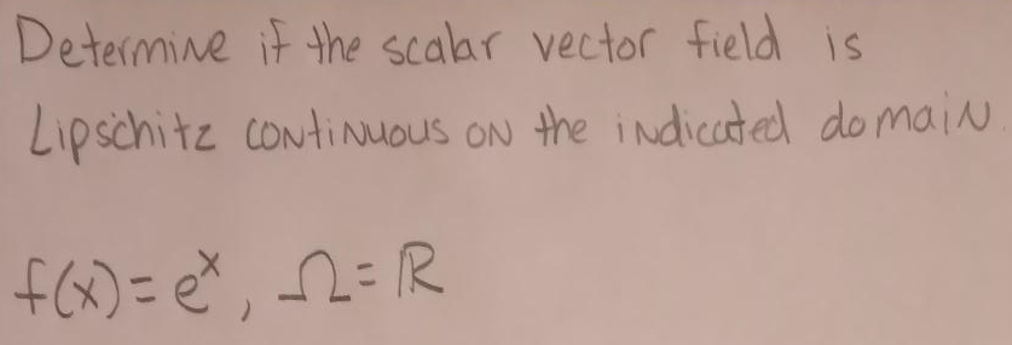 Determine if the scalar vector field is
Lipschitz continuous on the indicated domain.
f(x) = e^x, Ω = ℝ